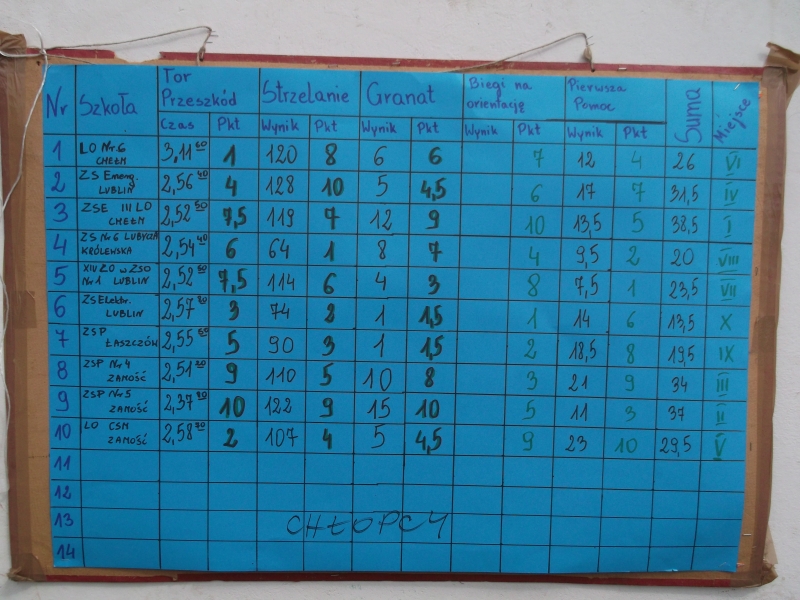 Nr Szkoła Tor Przeszkód Strzelanie Granat Biegi na orientację Pierwsza Pomoc Suma Miejsce
Czas Pkt Wynik Pkt Wynik Pkt Wynik Pkt Wynik Pkt
1 LO Nr.6 CHEŁM 3,11 60 1 120 8 6 6 7 12 4 26 VI
2 ZS Emeng. LUBLIN 2,56 40 4 128 10 5 4,5 6 17 7 31,5 IV
3 ZSE III LO CHEŁM 2,52 50 7,5 119 7 12 9 10 13,5 5 38,5 I
4 ZS Nr 6 LUBYCZA KRÓLEWSKA 2,54 40 6 64 1 8 7 4 9,5 2 20 VIII
5 XIV LO w ZSO Nr1 LUBLIN 2,52 50 7,5 114 6 4 3 8 7,5 1 23,5 VII
6 ZS Elektr. LUBLIN 2,57 3 74 2 1 1,5 1 14 6 13,5 X
7 ZSP ŁASZCZÓW 2,55 5 90 3 1 1,5 2 18,5 8 19,5 IX
8 ZSP Nr 4 ZAMOŚĆ 2,51 9 110 5 10 8 3 21 9 34 III
9 ZSP Nr 5 ZAMOŚĆ 2,37 10 122 9 15 10 5 11 3 37 II
10 LO CSM ZAMOŚĆ 2,58 2 107 4 5 4,5 9 23 10 29,5 V
11
12
13 CHŁOPCY
14